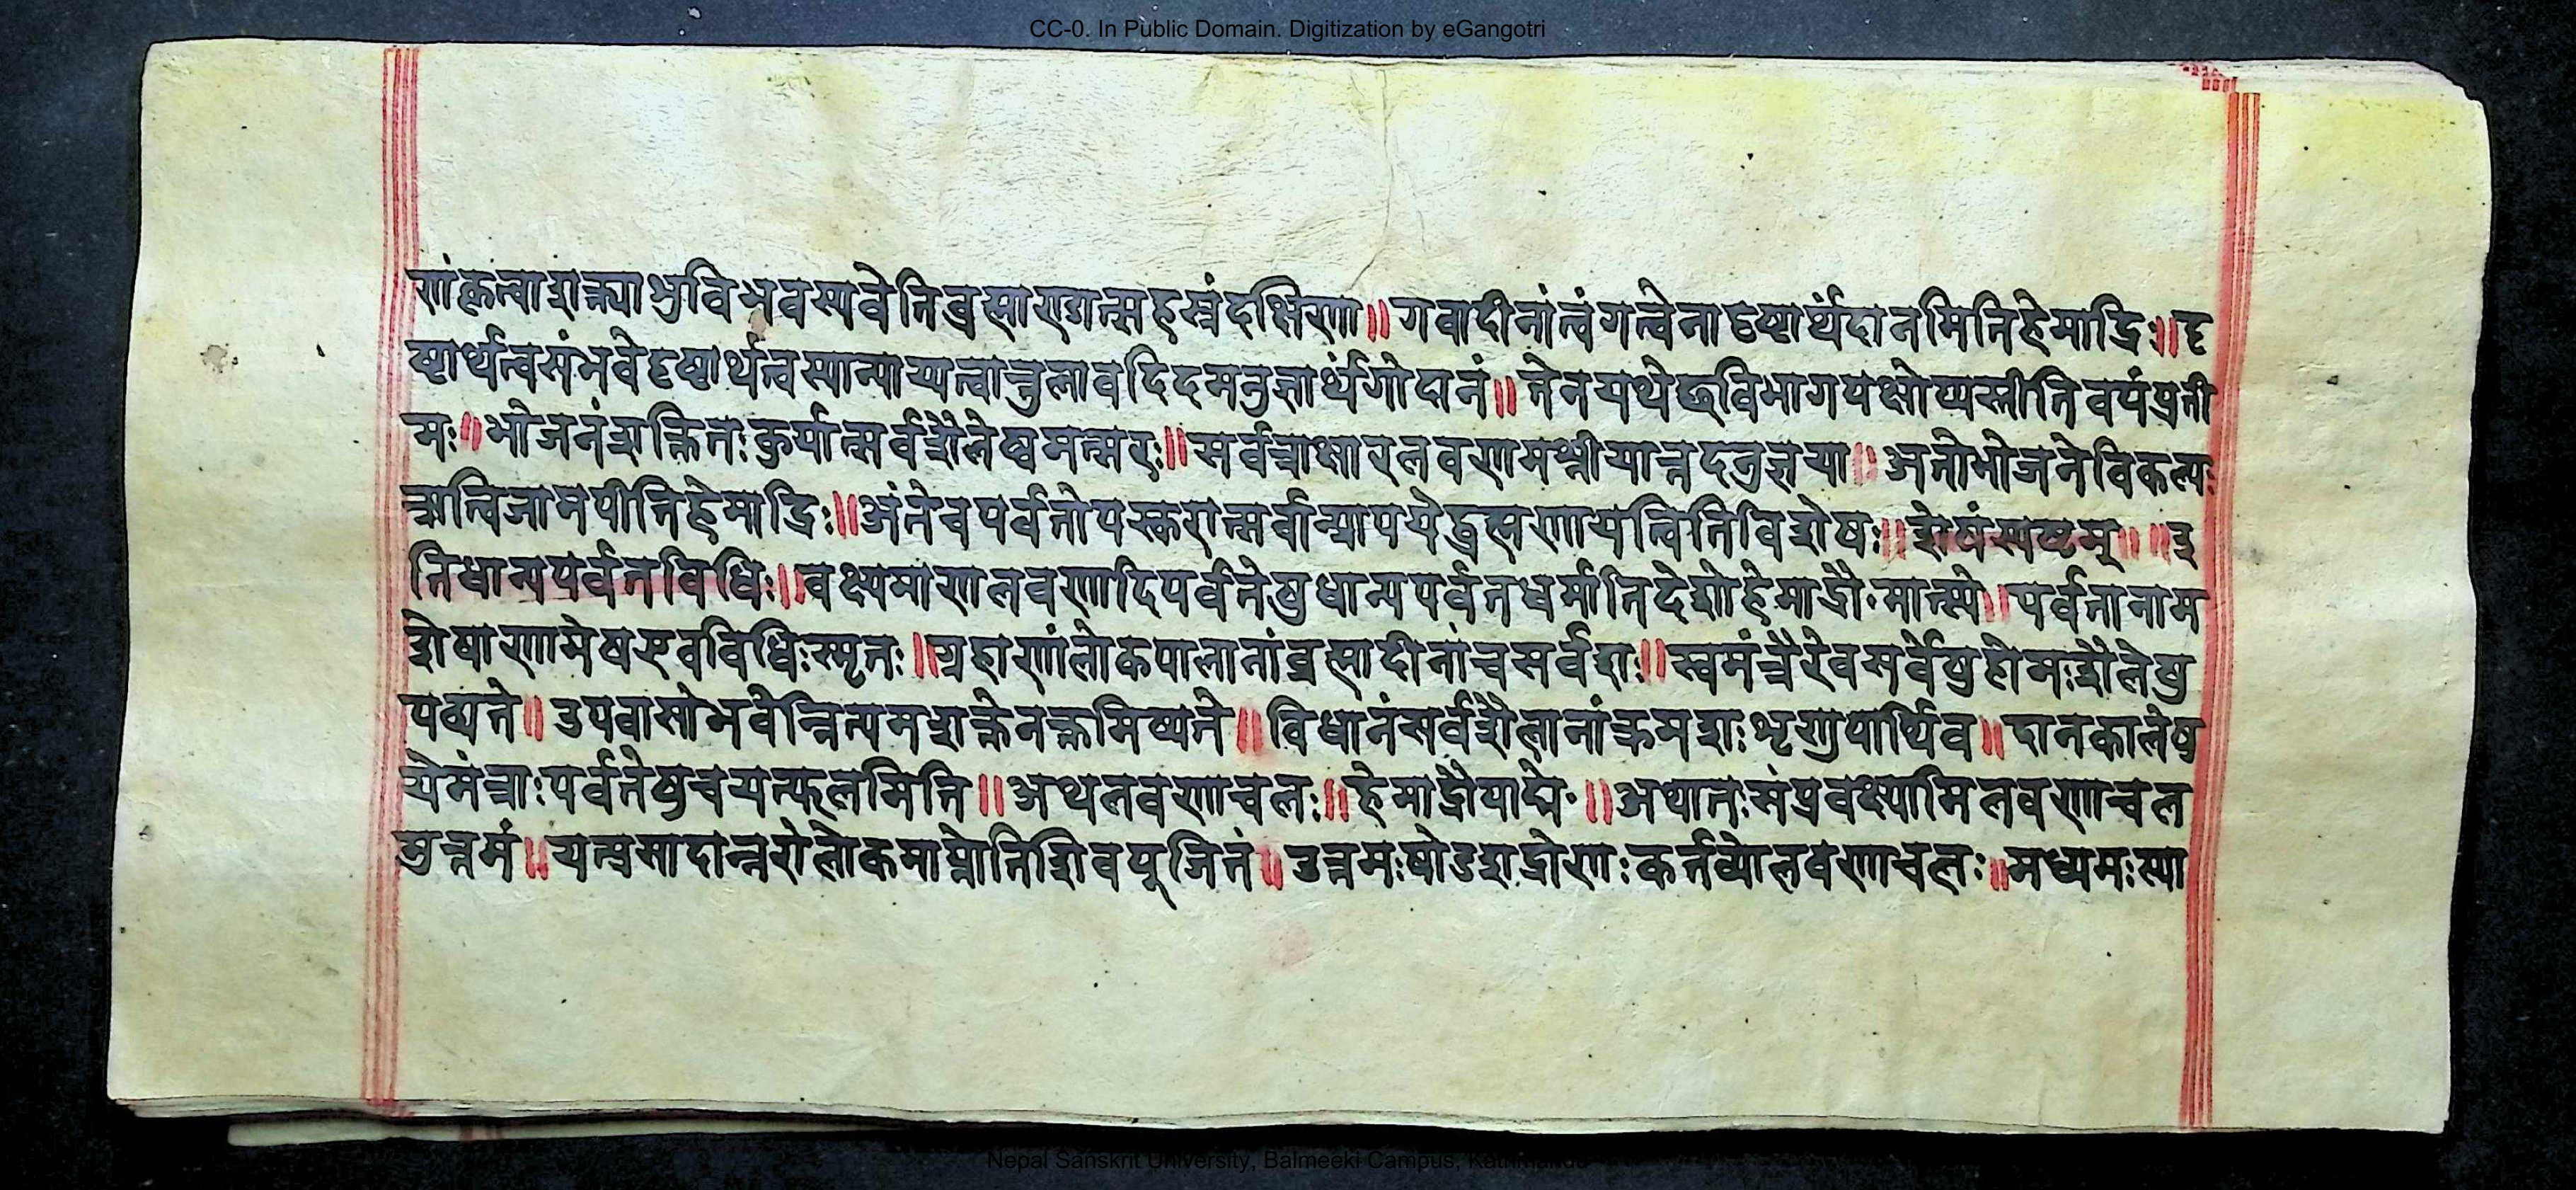 CC-0. In Public Domain. Digitization by eGangotri
णां कृत्वा शक्त्या भुवि भव स्यवेति ब्रह्माण्डात्सहस्रं दक्षिणा॥ गवादीनां त्वंगत्वेनादृष्टार्थं दानमिति हेमाद्रिः॥ दृ
ष्टार्थत्वसंभवे दृष्टार्थत्वस्यान्याय्यत्वात्तुलावदिदमनुज्ञार्थं गोदानं॥ तेन यथेछविभागपक्षोप्यस्तीति वयं प्रती
मः॥ भोजनं शक्तितः कुर्यात्सर्वशैलेष्वमत्सरः॥ सर्वत्राक्षारलवणमश्नीयात्तदनुज्ञया॥ अतो भोजने विकल्पः
ऋत्विजामपीति हेमाद्रिः॥ अंते च पर्वतोपस्करान्सर्वान्प्रापयेद्ब्रह्मणायत्विति विशेषः॥ शेषं स्पष्टम्॥ ॥इ
ति धान्यपर्वतविधिः॥ वक्ष्यमाणलवणादिपर्वतेषु धान्यपर्वतधर्मातिदेशो हेमाद्रौ मात्स्ये॥ पर्वतानाम
शेषाणामेष एव विधिः स्मृतः॥ ग्रहाणां लोकपालानां ब्रह्मादीनां च सर्वशः॥ स्वमंत्रैरेव सर्वेषु होमः शैलेषु
पठ्यते॥ उपवासो भवेन्नित्यमशक्ते नक्तमिष्यते॥ विधानं सर्वशैलानां क्रमशः शृणु पार्थिव॥ दानकालेषु
ये मंत्राः पर्वतेषु च यत्फलमिति॥ अथ लवणाचलः॥ हेमाद्रौ पाद्मे॥ अथातः संप्रवक्ष्यामि लवणाचल
मुत्तमं॥ यत्प्रसादान्नरो लोकमाप्नोति शिवपूजितं॥ उत्तमः षोडशद्रोणः कर्त्तव्यो लवणाचलः॥ मध्यमः स्या
Nepal Sanskrit University, Balmeeki Campus, Kathmandu